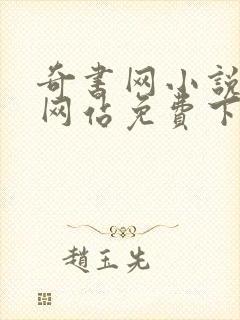 奇書网小說
网佔免費下
趙玉先